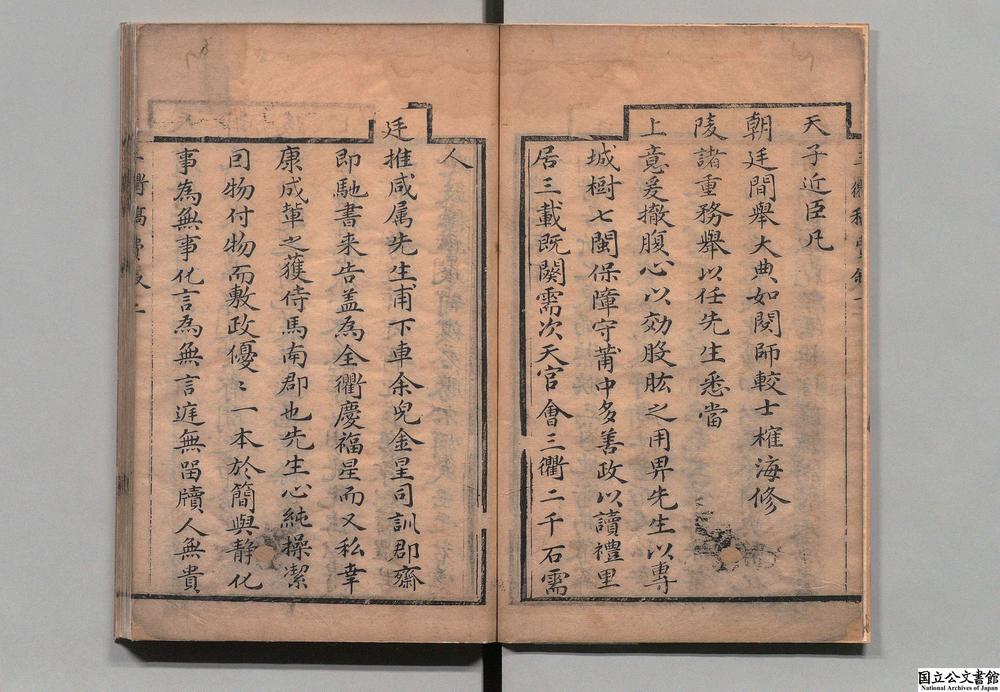 天子近臣凡
朝廷間舉大典如閱師較士榷海修
陵諸重務舉以任先生悉當
上意爰撤腹心以効股肱之用畀先生以專
城樹七閩保障守莆中多善政以讀禮里
居三載既闋需次天官會三衢二千石需
人
廷推咸属先生甫下車余兒金星司訓郡齋
即馳書来告盖為全衢慶福星而又私幸
康成輩之獲侍馬南郡也先生心純操潔
囙物付物而敷政優〻一本於簡與静化
事為無事化言為無言遅無留牘人無貴
国立公文書館
National Archives of Japan